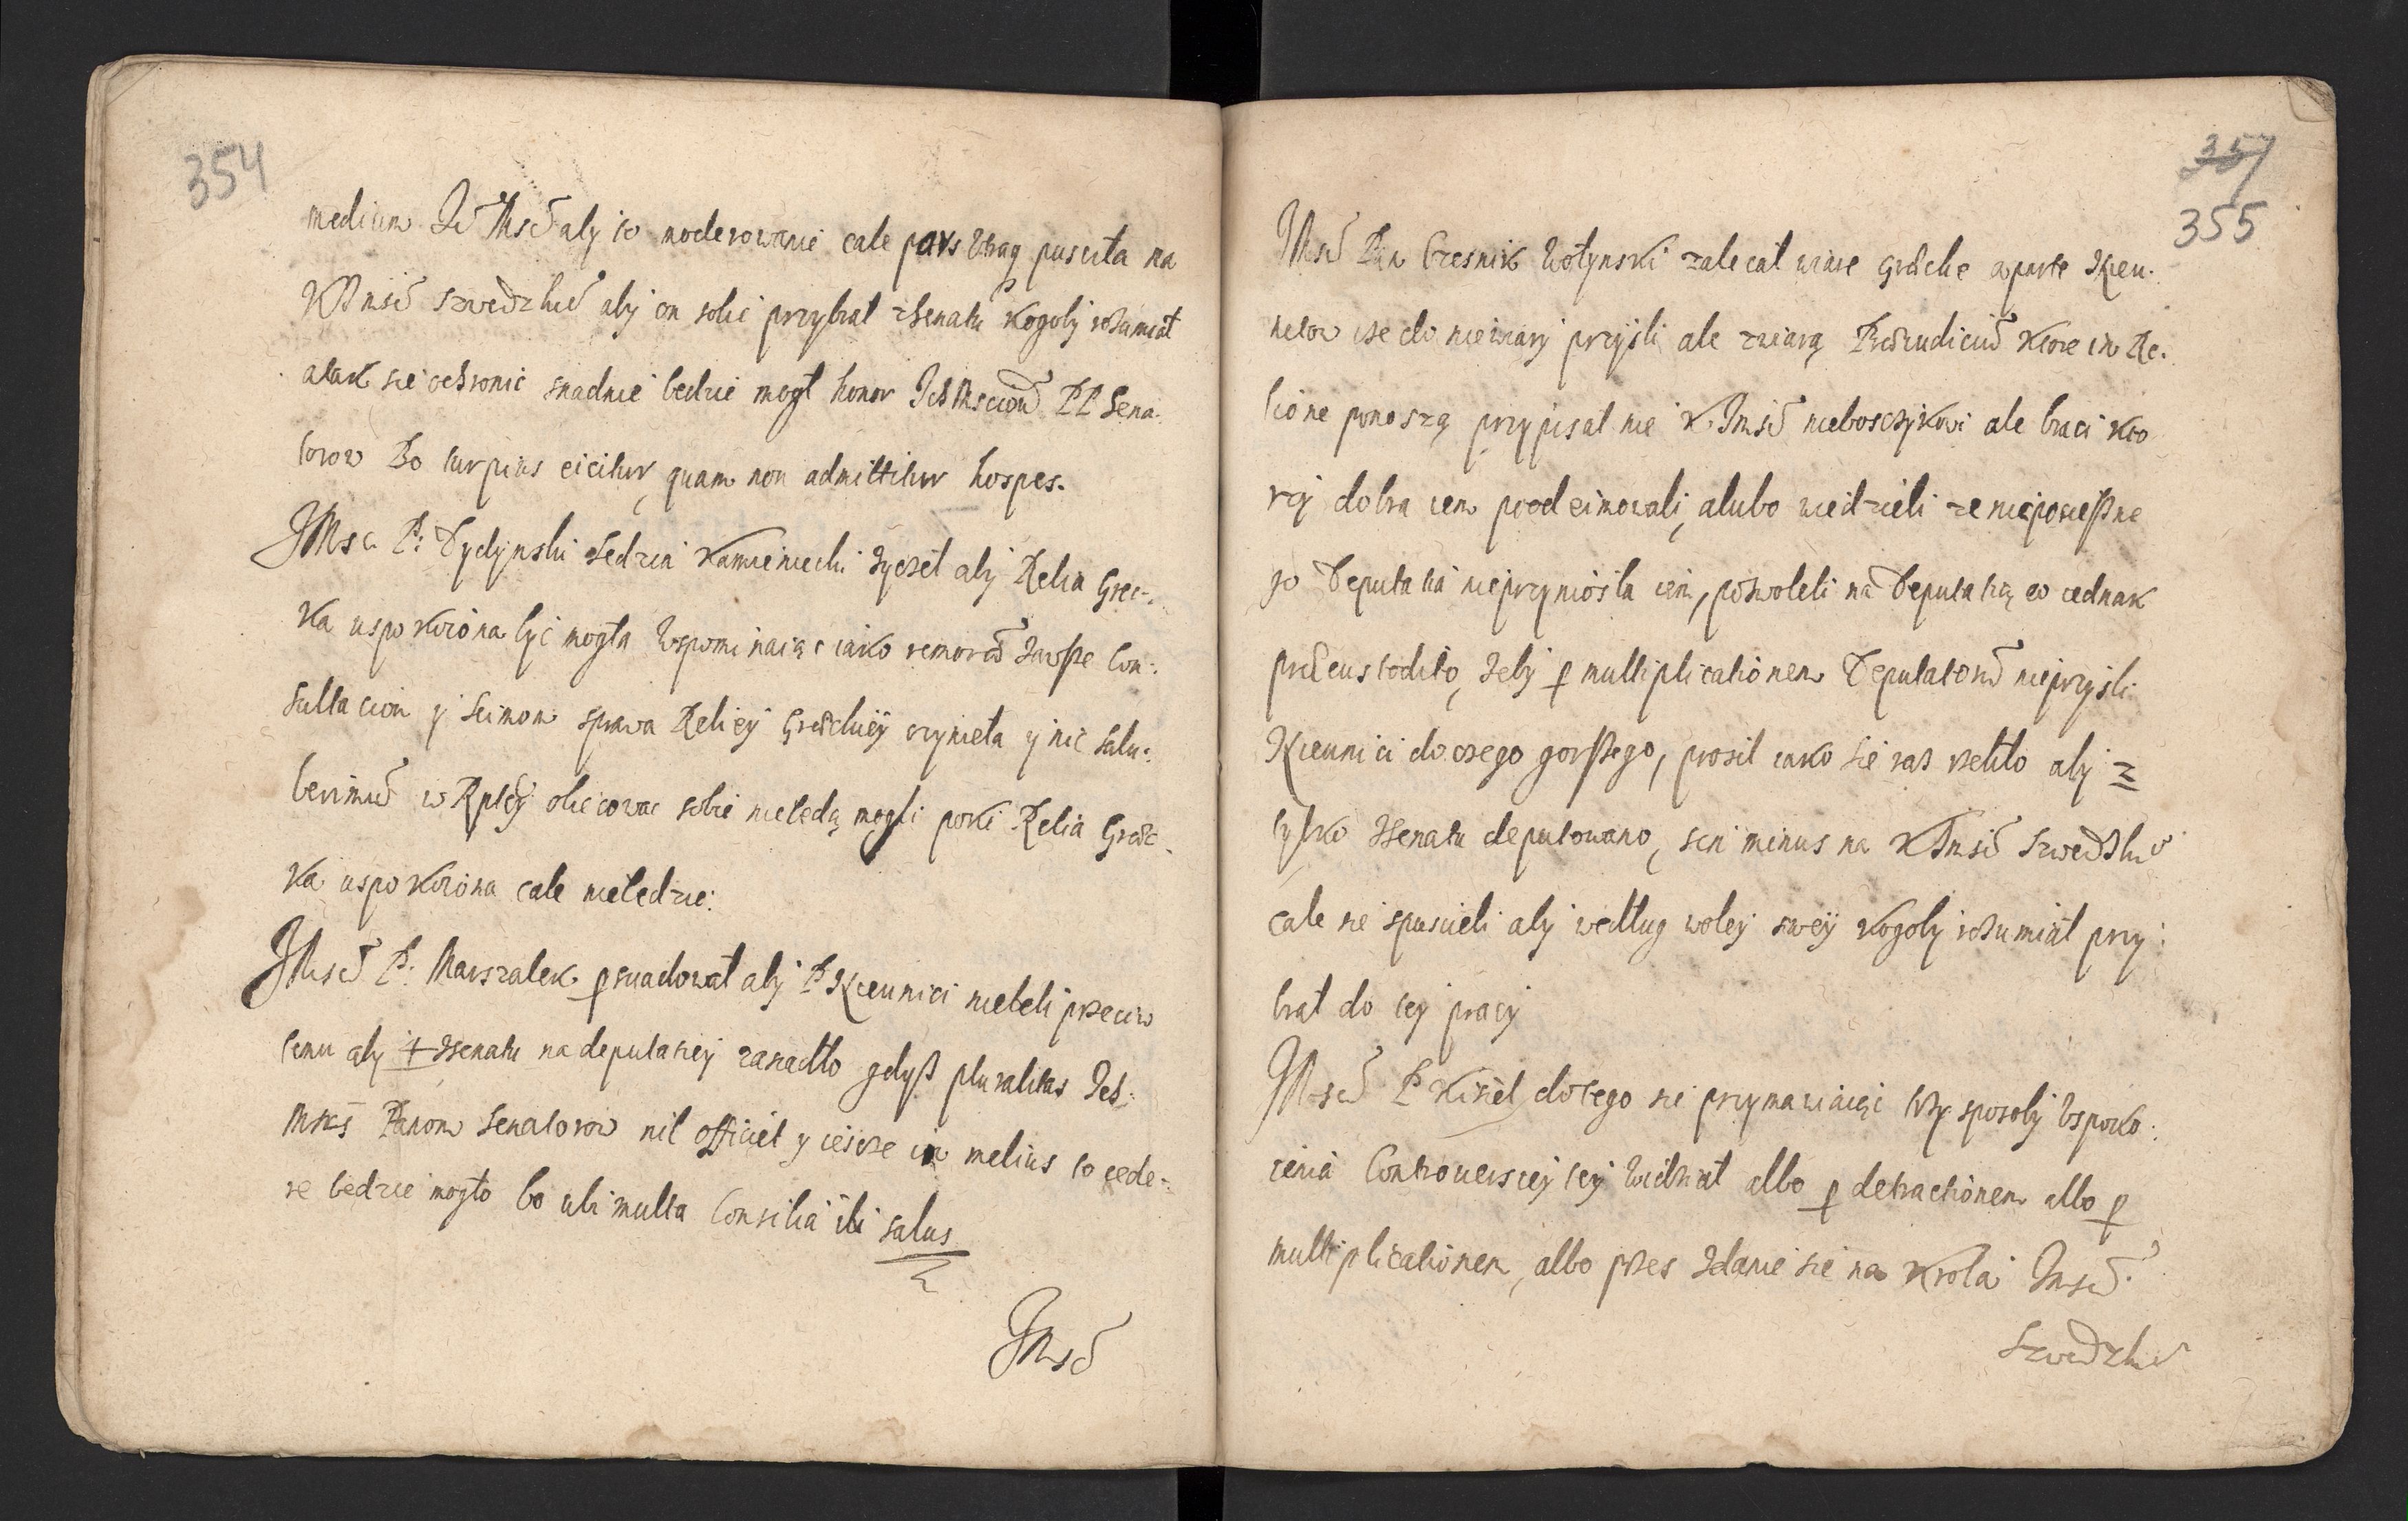 354
medium Ich Mscz aby to moderowanie cale pars utraq puscila na
K Jmsci szwedzkie aby on sobie przybral zsenatu kogoby rozumiał
a tak sie ochronic snadnie bedzie mogł honor IchMsciow PP Sena-
torow Bo turpius eicitur, quam non admittitur hospes.
JMsc P: Dydynski Sedzia Kamieniecki zyczeł aby Relia Grec-
ka uspokoiona byc mogła wspominaiąc iako remoras zawsze Con:
sultaciom y Seimom sprawa Reliey Greckiey czynieła y nic salu:
berimu w Rptey obiecowac sobie niebedą mogli poki Relia Grec-
ka uspokoiona cale niebedzie:
JMsc P: Marszalek psuadował aby P Xieunici niebeli przeciw
temu aby 4 zsenatu na deputatiey zasiadło gdysz pluralitas Ich:
Msc Panom Senatorow nil officiet y ieszcze in melius to cede-
re bedzie mogło bo ubi multa Consilia ibi salus
JMsc
357
355
JMsc Pan Czesnik Wołynski zalecał wiare Grecke a parte Xieu-
netow ize do niewiary przyśli ale zwiarą Preiudiciu ktore in Re-
lione ponoszą przypisal nie K. Jmsci nieboszczykowi ale braci kto
rzy dobra iem poodeimowali, alubo wiedzieli ze nicpocieszne
go Deputatia nieprzyniosła iem, pozwoleli na Deputatią co iednak
precustodito, zeby p multiplicationem Deputatow nieprzyśli
Xieunici do czego gorszego, prosił iako sie raz rzekło aby 2
tylko zsenatu deputowano, sin minus na K Jmsc szwedzkie
cale sie spuscieli aby według woley swey kogoby rozumiał przy:
brał do tey pracy
JMsc P Kisiel do tego sie przymawiaiąc trzy sposoby uspoko:
ienia Controuersiey tey widział albo p detractionem albo p
multiplicationem, albo przes zdanie sie na Krola Jmsc
Szwedzkie